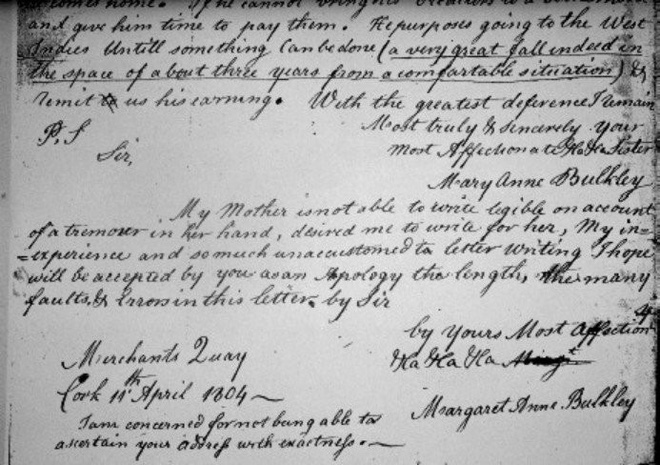 comes home. If he cannot bring his Creditors to a
and give him time to pay them. He purposes going to the West
Indies Untill something Can be done (a very great fall indeed in
the space of about three years from a comfortable situation) &
remit to us his earning. With the greatest deference I remain
Most truly & Sincerely Your
P.S
most Affectionate &a &a Sister
Sir,
Mary Anne Bulkley
My Mother is not able to write legible on account
of a tremour in her hand, desired me to write for her, My in=
=experience and so much unaccustomed to letter Writing I hope
will be accepted by you as an Apology the length, the many
faults, & Errors in this letter. by Sir
by Yours Most Affection
&a &a &a
Merchants Quay
Cork 11th April 1804
Margaret Anne Bulkley
I am concerned for not being able to
ascertain your address with exactness.